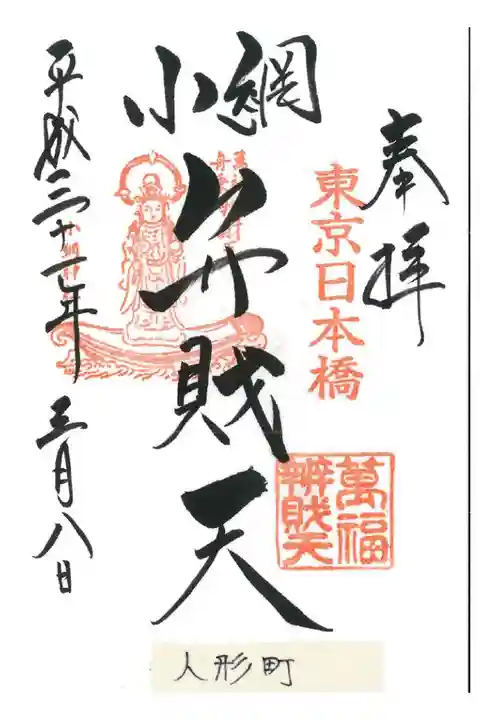 奉拝
東京日本橋
萬福
辨賊天
小網
弁賊天
平成三十一年 三月八日
人形町